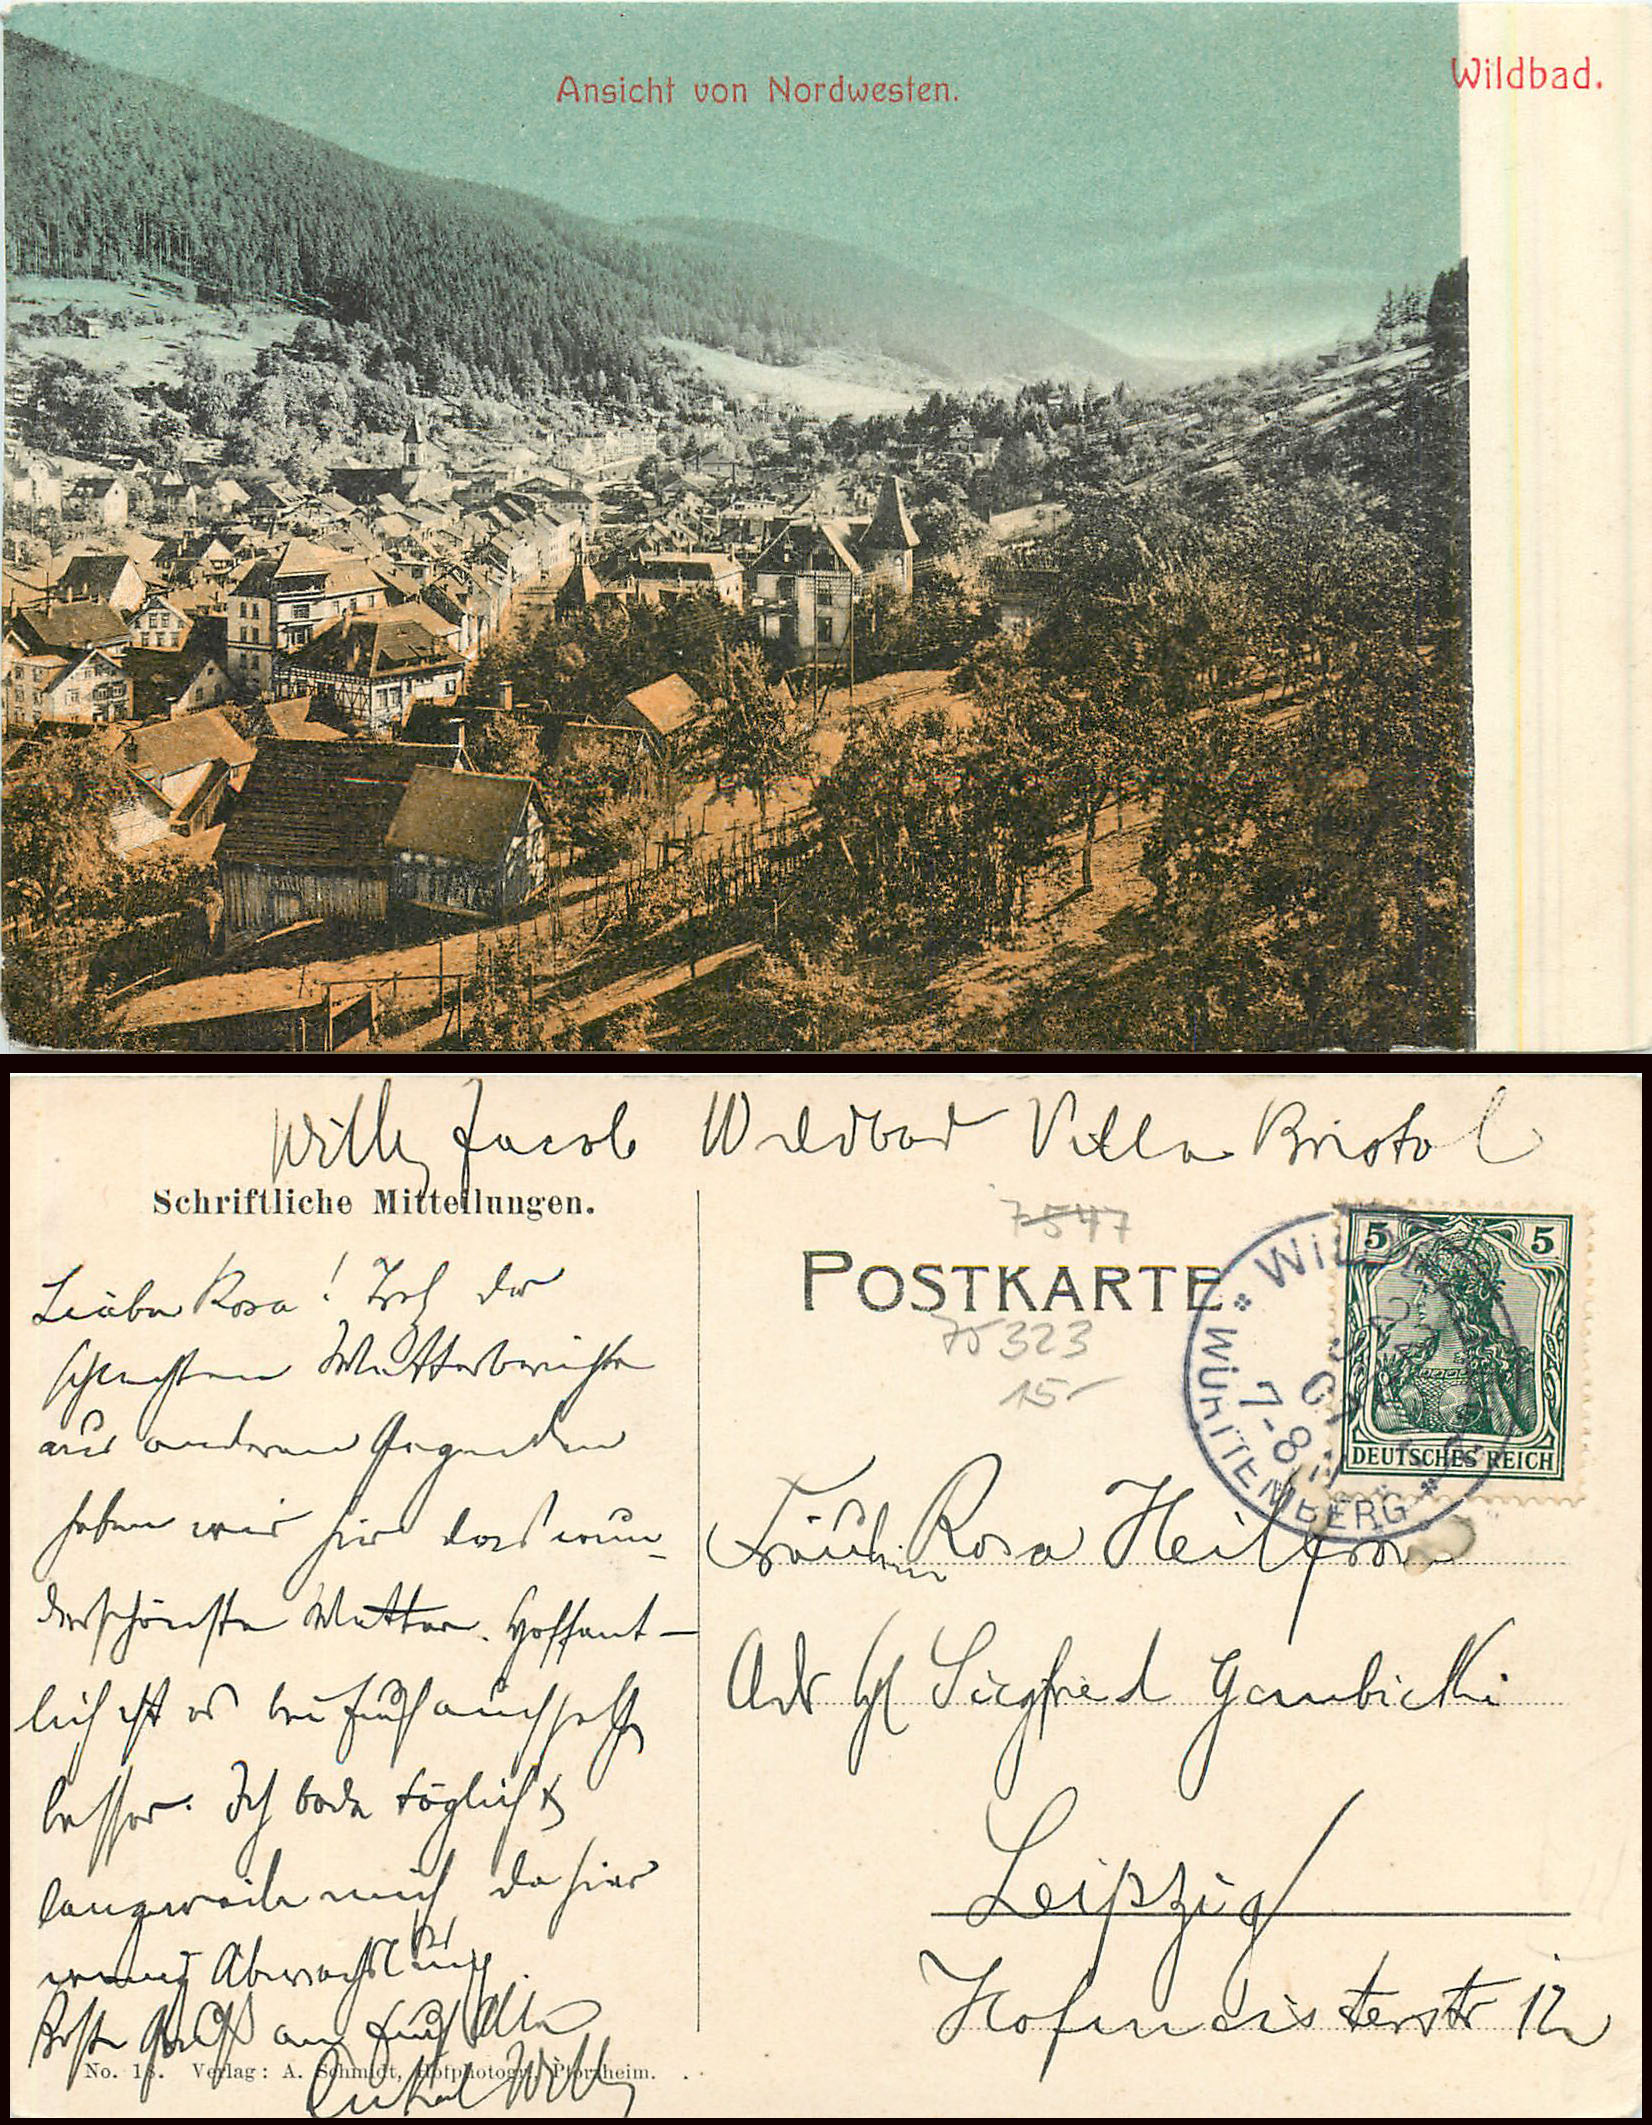 Ansicht von Nordwesten.
Wildbad.
Willy Jacob Wildbad Villa Bristol
Schriftliche Mitteilungen.
Liebe Rosa! Trotz der
schlechten Wetterberichte
aus anderen Gegenden
haben wir hier das wun-
derschönste Wetter. Hoffent-
lich ist es bei Euch auch jetzt
besser. Ich bade täglich &
langweile mich da hier
wenig Abwechslung.
Beste Grüße an Euch Alle
Onkel Willy
No. 18. Verlag: A. Schmidt, Hofphotogr., Pforzheim.
7547
POSTKARTE
75323
15-
WILDBAD
7-8
WÜRTTEMBERG
5 5
DEUTSCHES REICH
Fräulein Rosa Heilfron
Adr Siegfried Gambicki
Leipzig
Hofmeisterstr 12